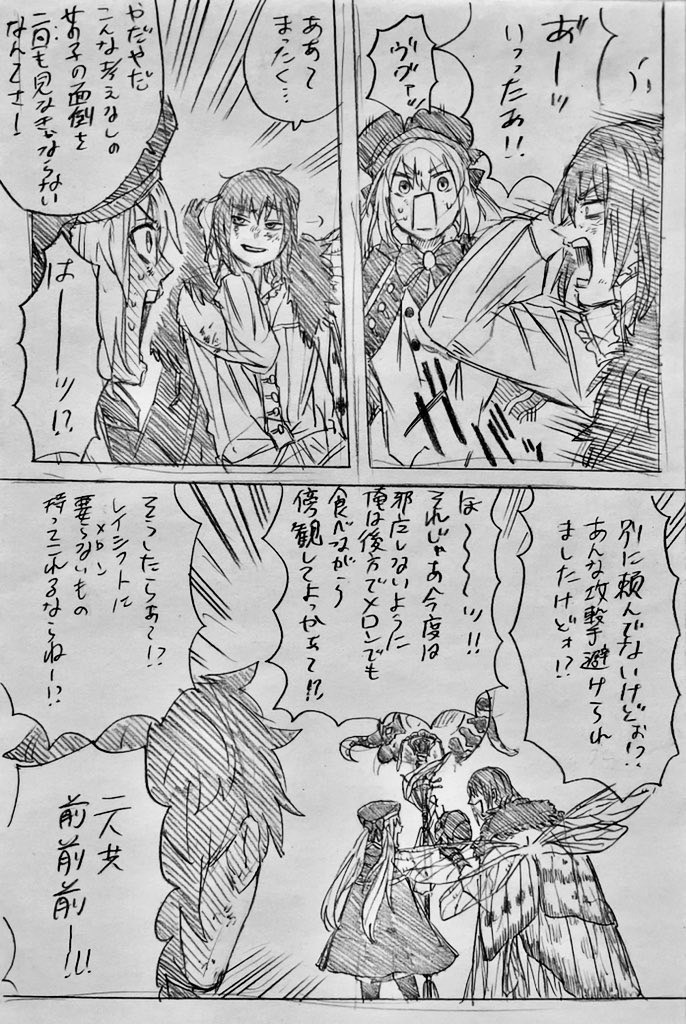 あ゛ーッ
いっったぁ!!
ヴヴァッ
ああ〜
まったく…
やだやだ
こんな考えなしの
女の子の面倒を
二回も見なきゃならない
なんてさー!
はーーーッ!?
別に頼んでないけどぉ!?
あんな攻撃避けてられ
ましたけどォ!?
は〜〜〜ッ!!
それじゃあ今度は
邪広しないように
俺は後方でメロンでも
食べながら
傍観してよっかぁて!?
そうしたらぁ〜!?
レイシフトに
メロン
要らないもの
持ってこれるならねー!?
二人共
前前前ー!!